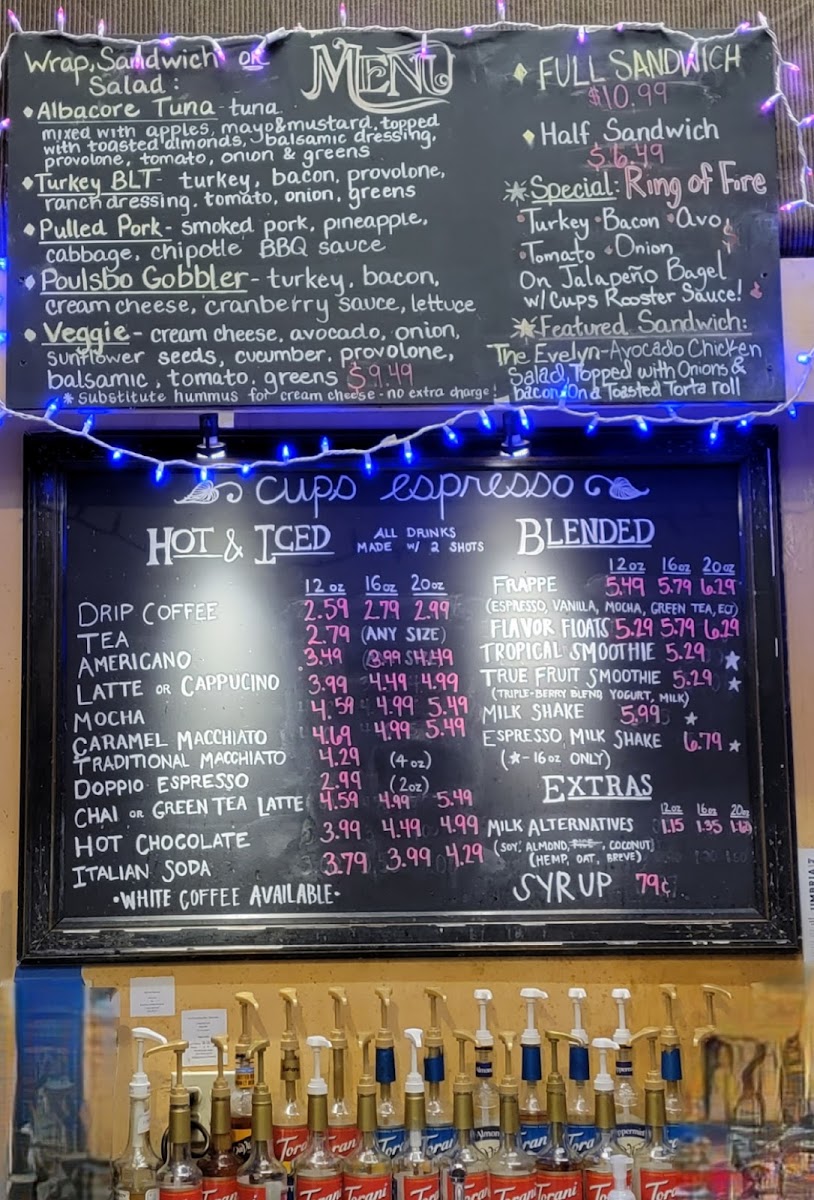 Wrap, Sandwich or
Salad:
MENU
• Albacore Tuna - tuna
mixed with apples, mayo & mustard, topped
with toasted almonds, balsamic dressing,
provolone, tomato, onion & greens
• Turkey BLT turkey, bacon, provolone,
ranch dressing, tomato, onion, greens
• Pulled Pork - smoked pork, pineapple,
cabbage, chipotle BBQ sauce
• Poulsbo Gobbler - turkey, bacon,
cream cheese, cranberry sauce, lettuce
• Veggie - cream cheese, avocado, onion,
sunflower seeds, cucumber, provolone,
balsamic, tomato, greens $9.49
* Substitute hummus for cream cheese - no extra charge
• FULL SANDWICH
$10.99
• Half Sandwich
$6.49
Special: Ring of Fire
• Turkey • Bacon • Avo
• Tomato • Onion
On Jalapeño Bagel
w/ Cups Rooster Sauce!
Featured Sandwich:
The Evelyn - Avocado Chicken
Salad, Topped with Onions &
bacon On a Toasted Torta roll
cups espresso
HOT & ICED
ALL DRINKS
MADE w/ 2 SHOTS
12 oz 16 oz 20 oz
DRIP COFFEE 2.59 2.79 2.99
TEA 2.79 (ANY SIZE)
AMERICANO 3.49 3.99 4.49
LATTE OR CAPPUCINO 3.99 4.49 4.99
MOCHA 4.59 4.99 5.49
CARAMEL MACCHIATO 4.69 4.99 5.49
TRADITIONAL MACCHIATO 4.29 (4oz)
DOPPIO ESPRESSO 2.99 (2oz)
CHAI OR GREEN TEA LATTE 4.59 4.99 5.49
HOT CHOCOLATE 3.99 4.49 4.99
ITALIAN SODA 3.79 3.99 4.29
• WHITE COFFEE AVAILABLE •
BLENDED
12oz 16oz 20oz
FRAPPE 5.49 5.79 6.29
(ESPRESSO, VANILLA, MOCHA, GREEN TEA, ECT)
FLAVOR FLOATS 5.29 5.79 6.29
TROPICAL SMOOTHIE 5.29 ★
TRUE FRUIT SMOOTHIE 5.29 ★
(TRIPLE-BERRY BLEND, YOGURT, MILK)
MILK SHAKE 5.99 ★
ESPRESSO MILK SHAKE 6.79 ★
(★-16 oz ONLY)
EXTRAS
12oz 16oz 20oz
MILK ALTERNATIVES 1.15 1.35
(SOY, ALMOND, RICE, COCONUT)
(HEMP, OAT, BREVE)
SYRUP 79¢
Torani
Torani
Torani
Torani
Torani
Torani